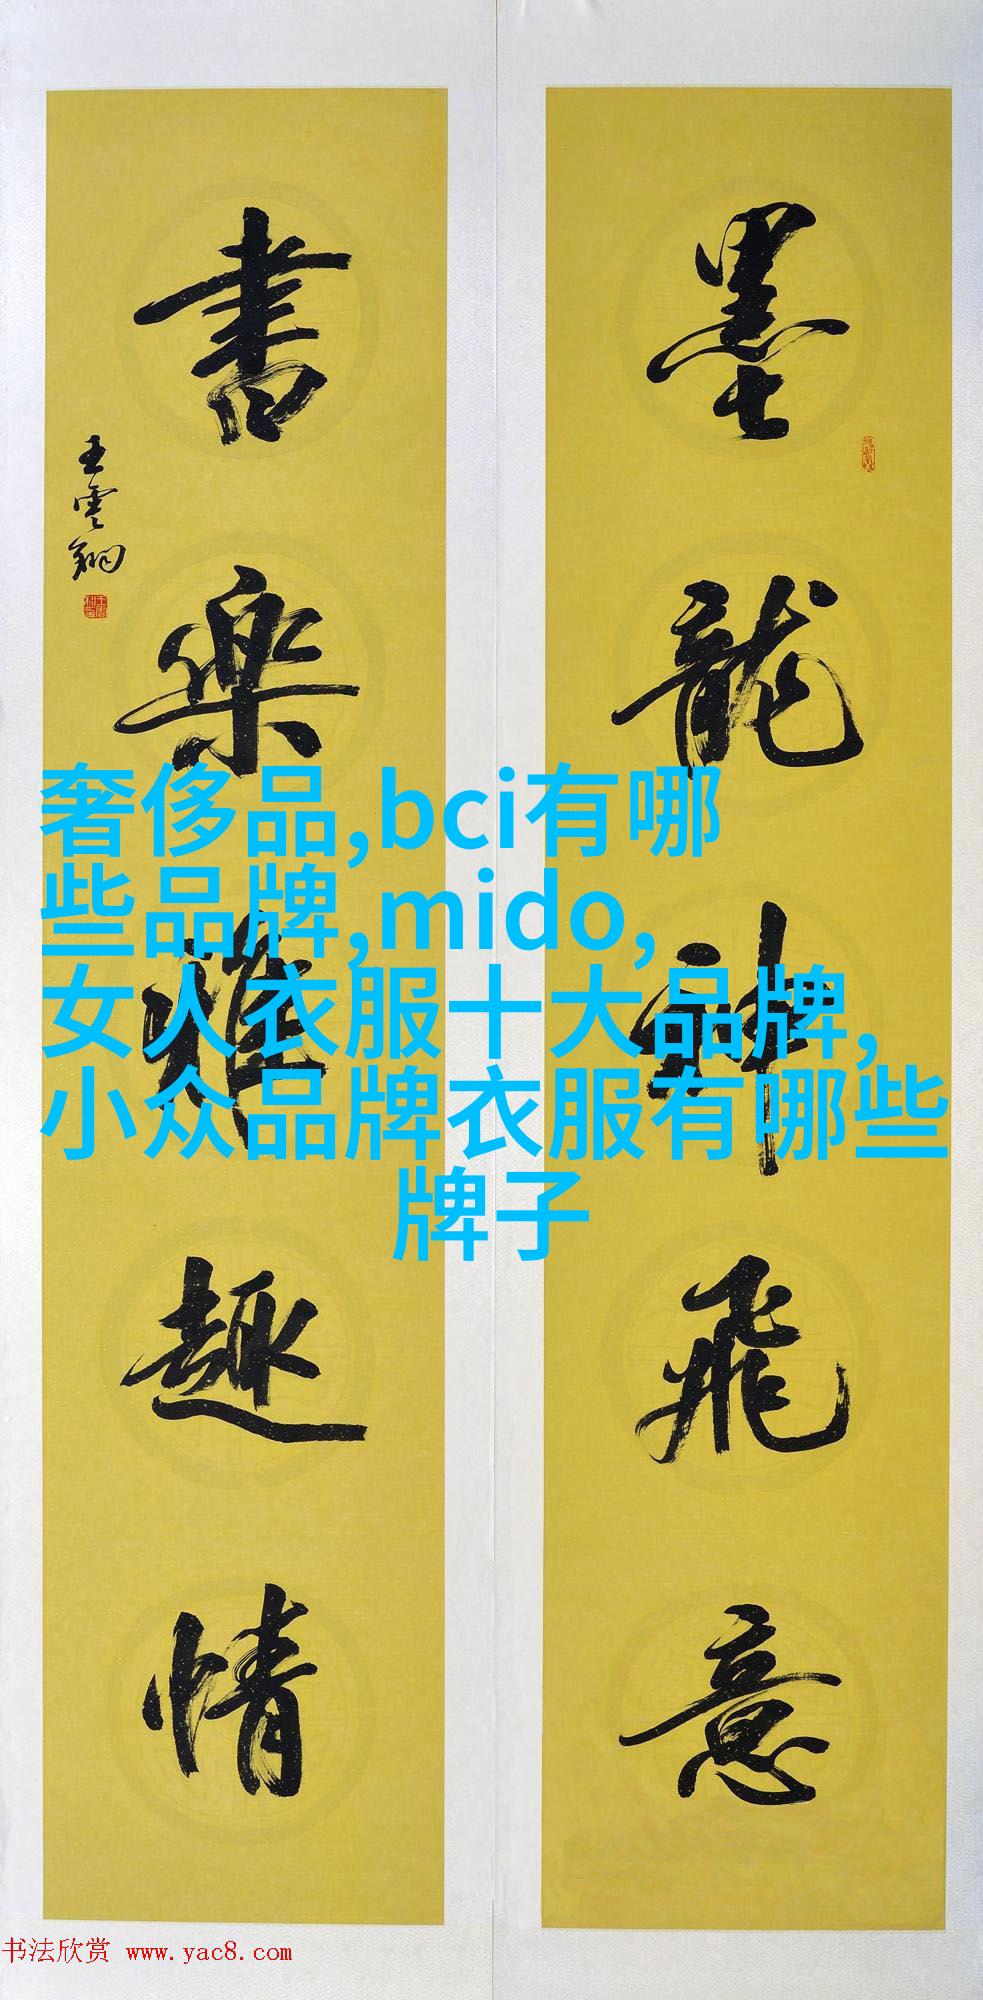 墨龍神飛意
書樂雅趣情
王雲翔
奢侈品,bci有哪
些品牌,mido,
女人衣服十大品牌,
小众品牌衣服有哪些
牌子
书法欣赏 www.yac8.com